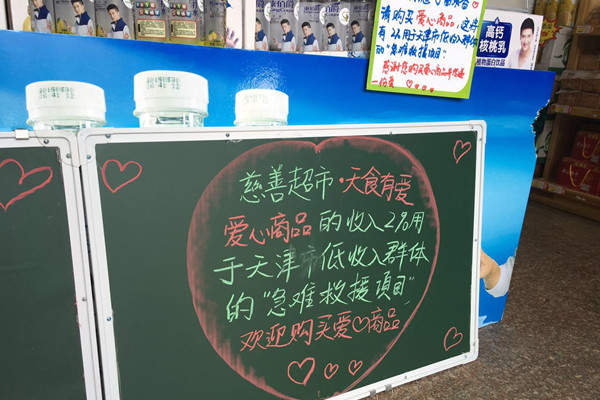 请购买爱心商品,这些
有2%用于天津市低收入群体
的"急难救援项目"
感谢您购买爱心商品奉献
一份爱
高钙
核桃乳
植物蛋白饮品
慈善超市·天食有爱
爱心商品的收入2%用
于天津市低收入群体
的"急难救援项目"
欢迎购买爱♡商品